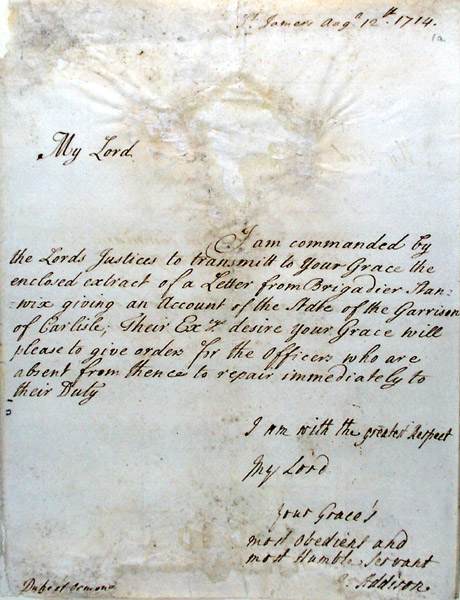 St James's Augt 12th. 1714.
1a
My Lord
I am commanded by
the Lords Justices to transmitt to Your Grace the
enclosed extract of a Letter from Brigadier Stan=
=wix giving an Account of the State of the Garrison
of Carlisle; Their Excys desire your Grace will
please to give orders for the Officers who are
absent from thence to repair immediately to
their Duty
I am with the greatest Respect
My Lord
your Grace's
most obedient and
most Humble Servant
J. Addison.
Duke of Ormond